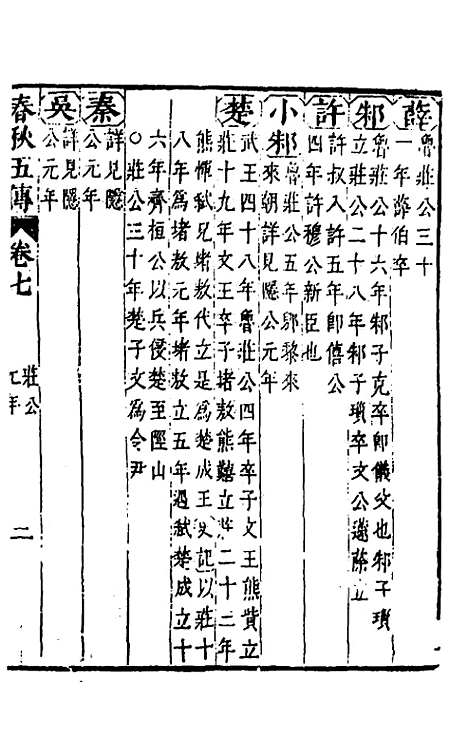 薛
魯莊公三十
一年薛伯卒
邾
魯莊公十六年邾子克卒卽儀父也邾子瑣
立莊公二十八年邾子瑣卒文公蘧蒢立
許
許叔入許五年卽僖公
四年許穆公新臣也
小邾
魯莊公五年郳黎來
來朝詳見隱公元年
楚
武王四十八年魯莊公四年卒子文王熊貲立
莊十九年文王卒子堵敖熊囏立莊二十三年
熊惲弑兄堵敖代立是爲楚成王史記以莊十
八年爲堵敖元年堵敖立五年遇弑楚成立十
六年齊桓公以兵侵楚至陘山
○莊公三十年楚子文爲令尹
秦
詳見隱
公元年
吳
詳見隱
公元年
春秋五傳 卷七 莊公 元年 二